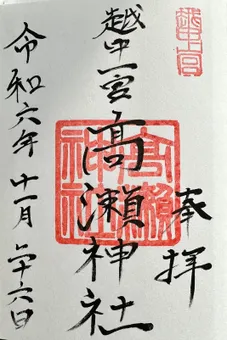 越中一宮
奉拝
越中一宮
高瀬神社
高瀬神社
令和六年十一月二十六日